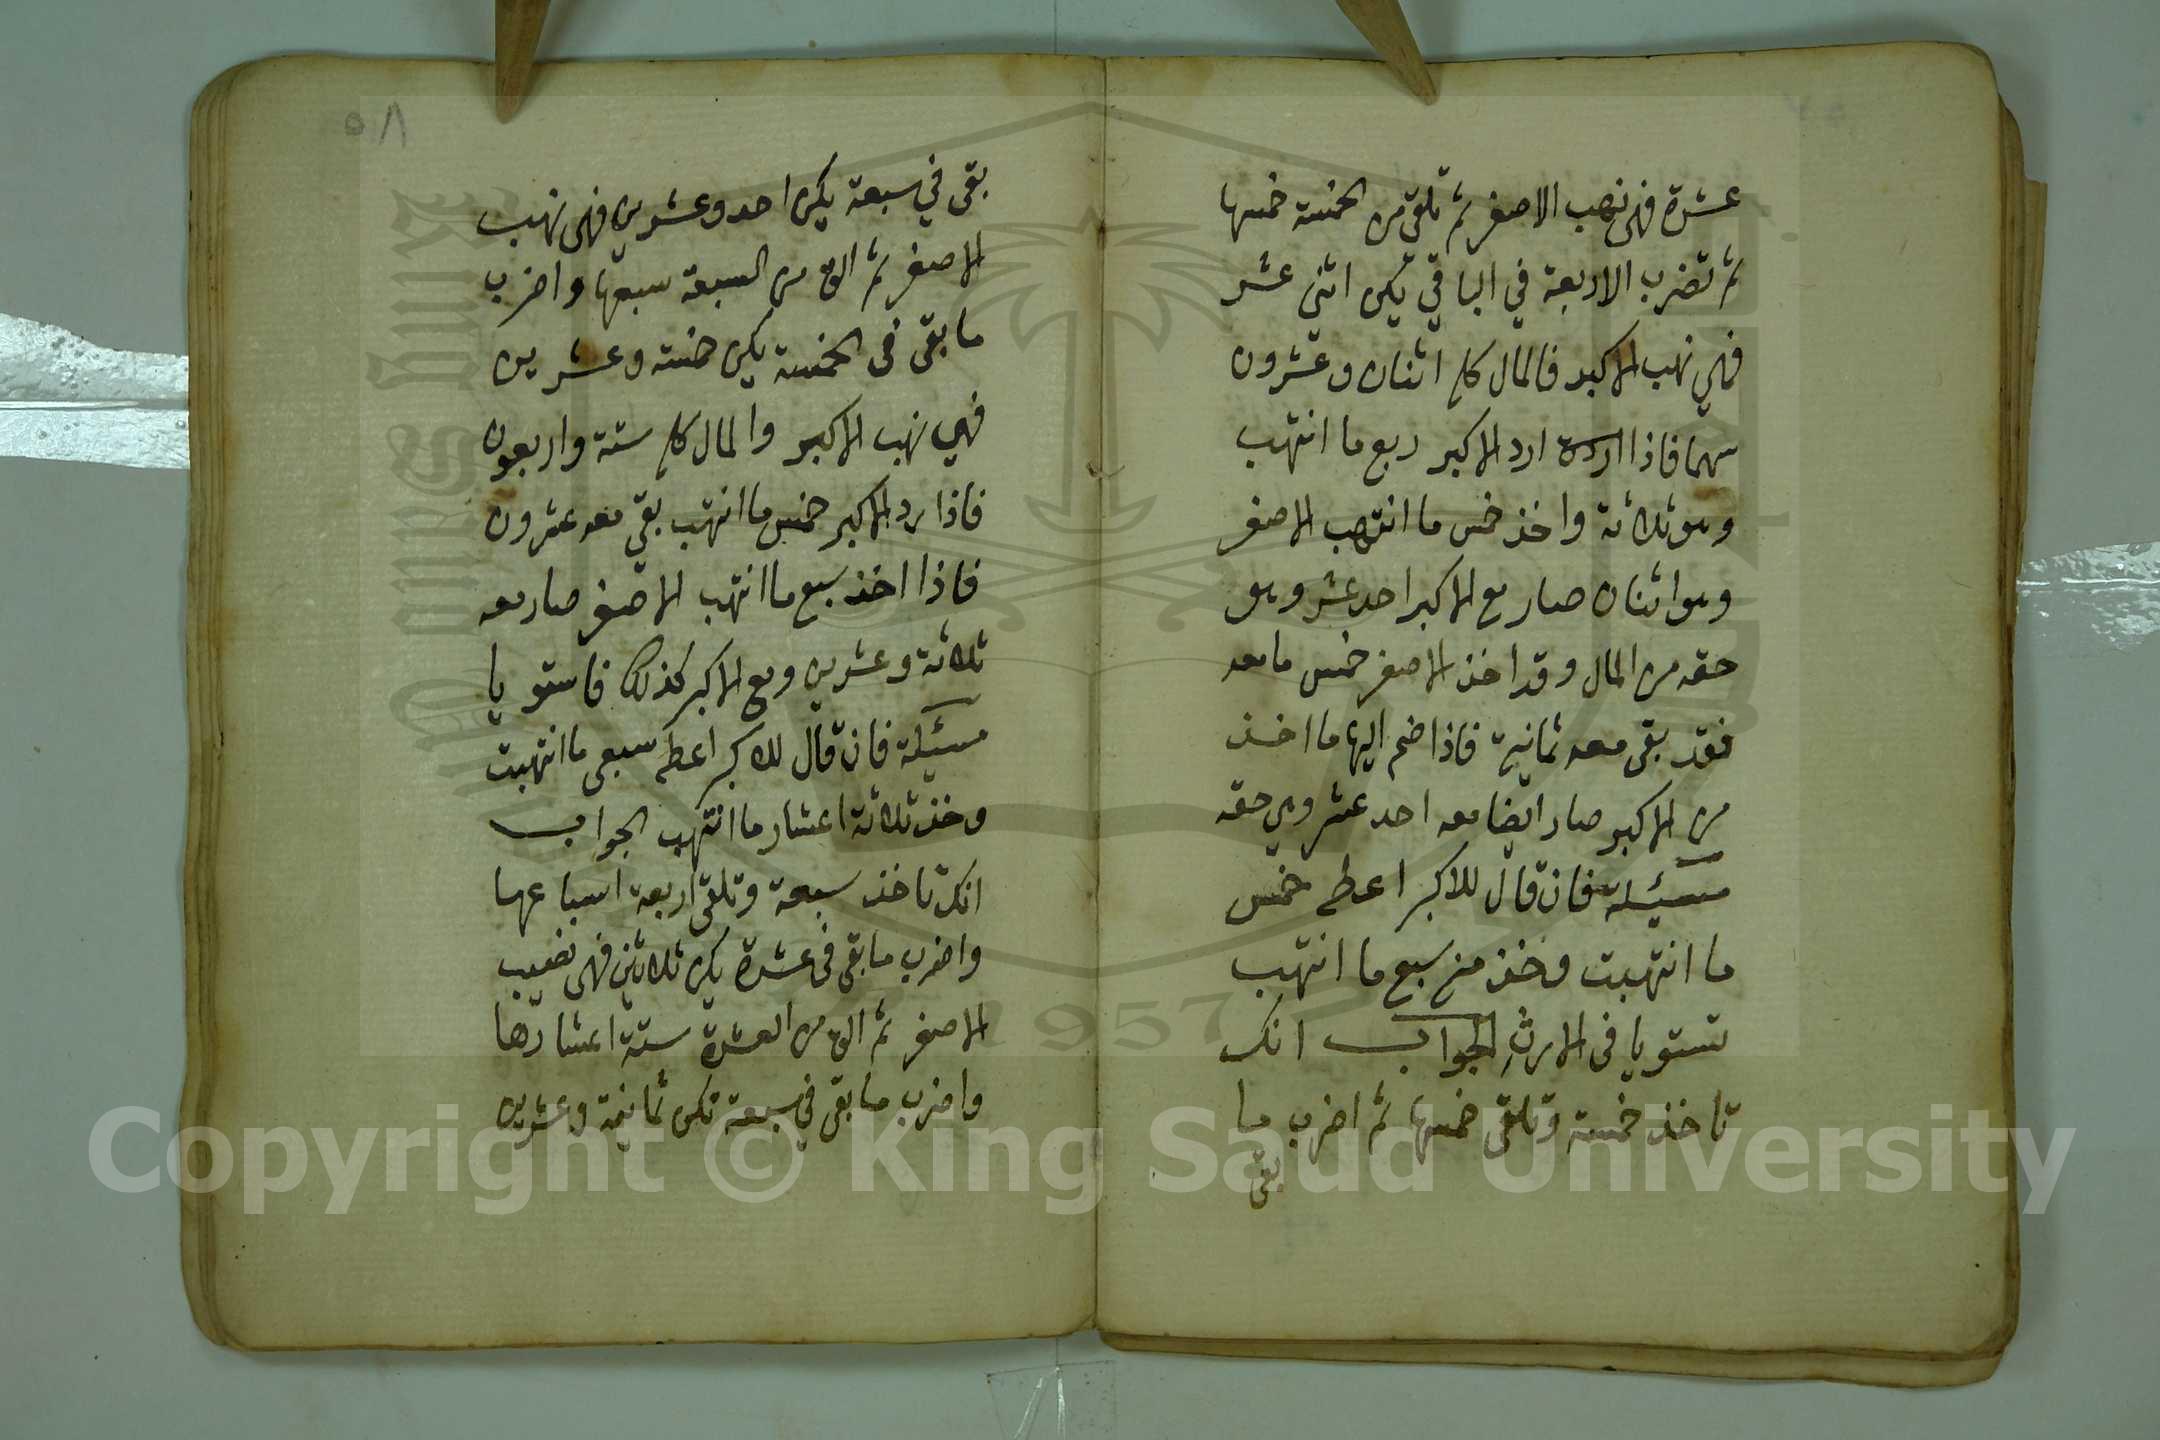 عشرة فهى نهب الاصغر ثم تلقى من الخمسة خمسها
ثم تضرب الاربعة في الباقي يكن اثني عشر
فهي نهب الاكبر فالمال كله اثنان وعشرون
سهما فاذا اردد الاكبر ربع ما انتهب
وهو ثلاثة واخذ خمس ما انتهب الاصغر
وهو اثنان صار مع الاكبر احد عشر وهو
حقه من المال وقد اخذ الاصغر خمس ما معه
فقد بقى معه ثمانية فاذا ضم اليها ما اخذ
من الاكبر صار ايضا معه احد عشر وهي حقه
مسئلة فان قال للاكبر اعطه خمس
ما انتهبت وخذ منه سبع ما انتهب
تستويا فى الارث الجواب انك
تاخذ خمسة وتلقى خمسها ثم اضرب ما
بقى
٥٨
بقى في سبعة يكن احد وعشرين فهى نهب
الاصغر ثم الق من السبعة سبعها واضرب
ما بقى فى الخمسة يكن خمسة وعشرين
فهي نهب الاكبر والمال كله ستة واربعون
فاذا رد الاكبر خمس ما انتهب بقي معه عشرون
فاذا اخذ سبع ما انتهب الاصغر صار معه
ثلاثة وعشرين ومع الاكبر كذلك فاستويا
مسئلة فان قال للاكبر اعطه سبعي ما انتهبت
وخذ ثلاثة اعشار ما انتهب الجواب
انك تاخذ سبعة وتلقى اربعة اسباعها
واضرب ما بقى فى عشرة يكن ثلاثين فهى نصيب
الاصغر ثم الق من العشرة ستة اعشارها
واضرب ما بقى في سبعة تكن ثمانية وعشرين
Copyright © King Saud University
1957